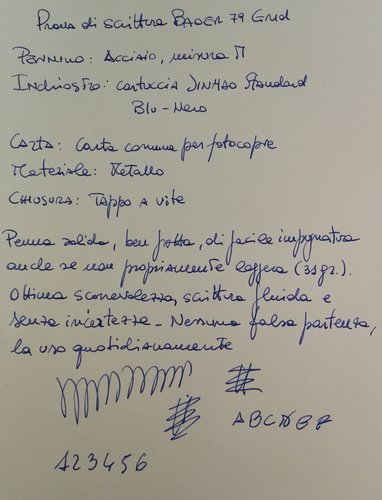 Prova di scrittura BAOER 79 Grid
PENNINO: ACCIAIO, misura M
INCHIOSTRO: cartuccia JINHAO Standard
Blu-Nero
CARTA: Carta comune per fotocopie
MATERIALE: METALLO
CHIUSURA: TAPPO A VITE
Penna solida, ben fatta, di facile impugnatura
anche se non propriamente leggera (33gr.).
Ottima scorrevolezza, scrittura fluida e
senza incertezze - Nessuna falsa partenza,
la uso quotidianamente
ABCDEF
123456